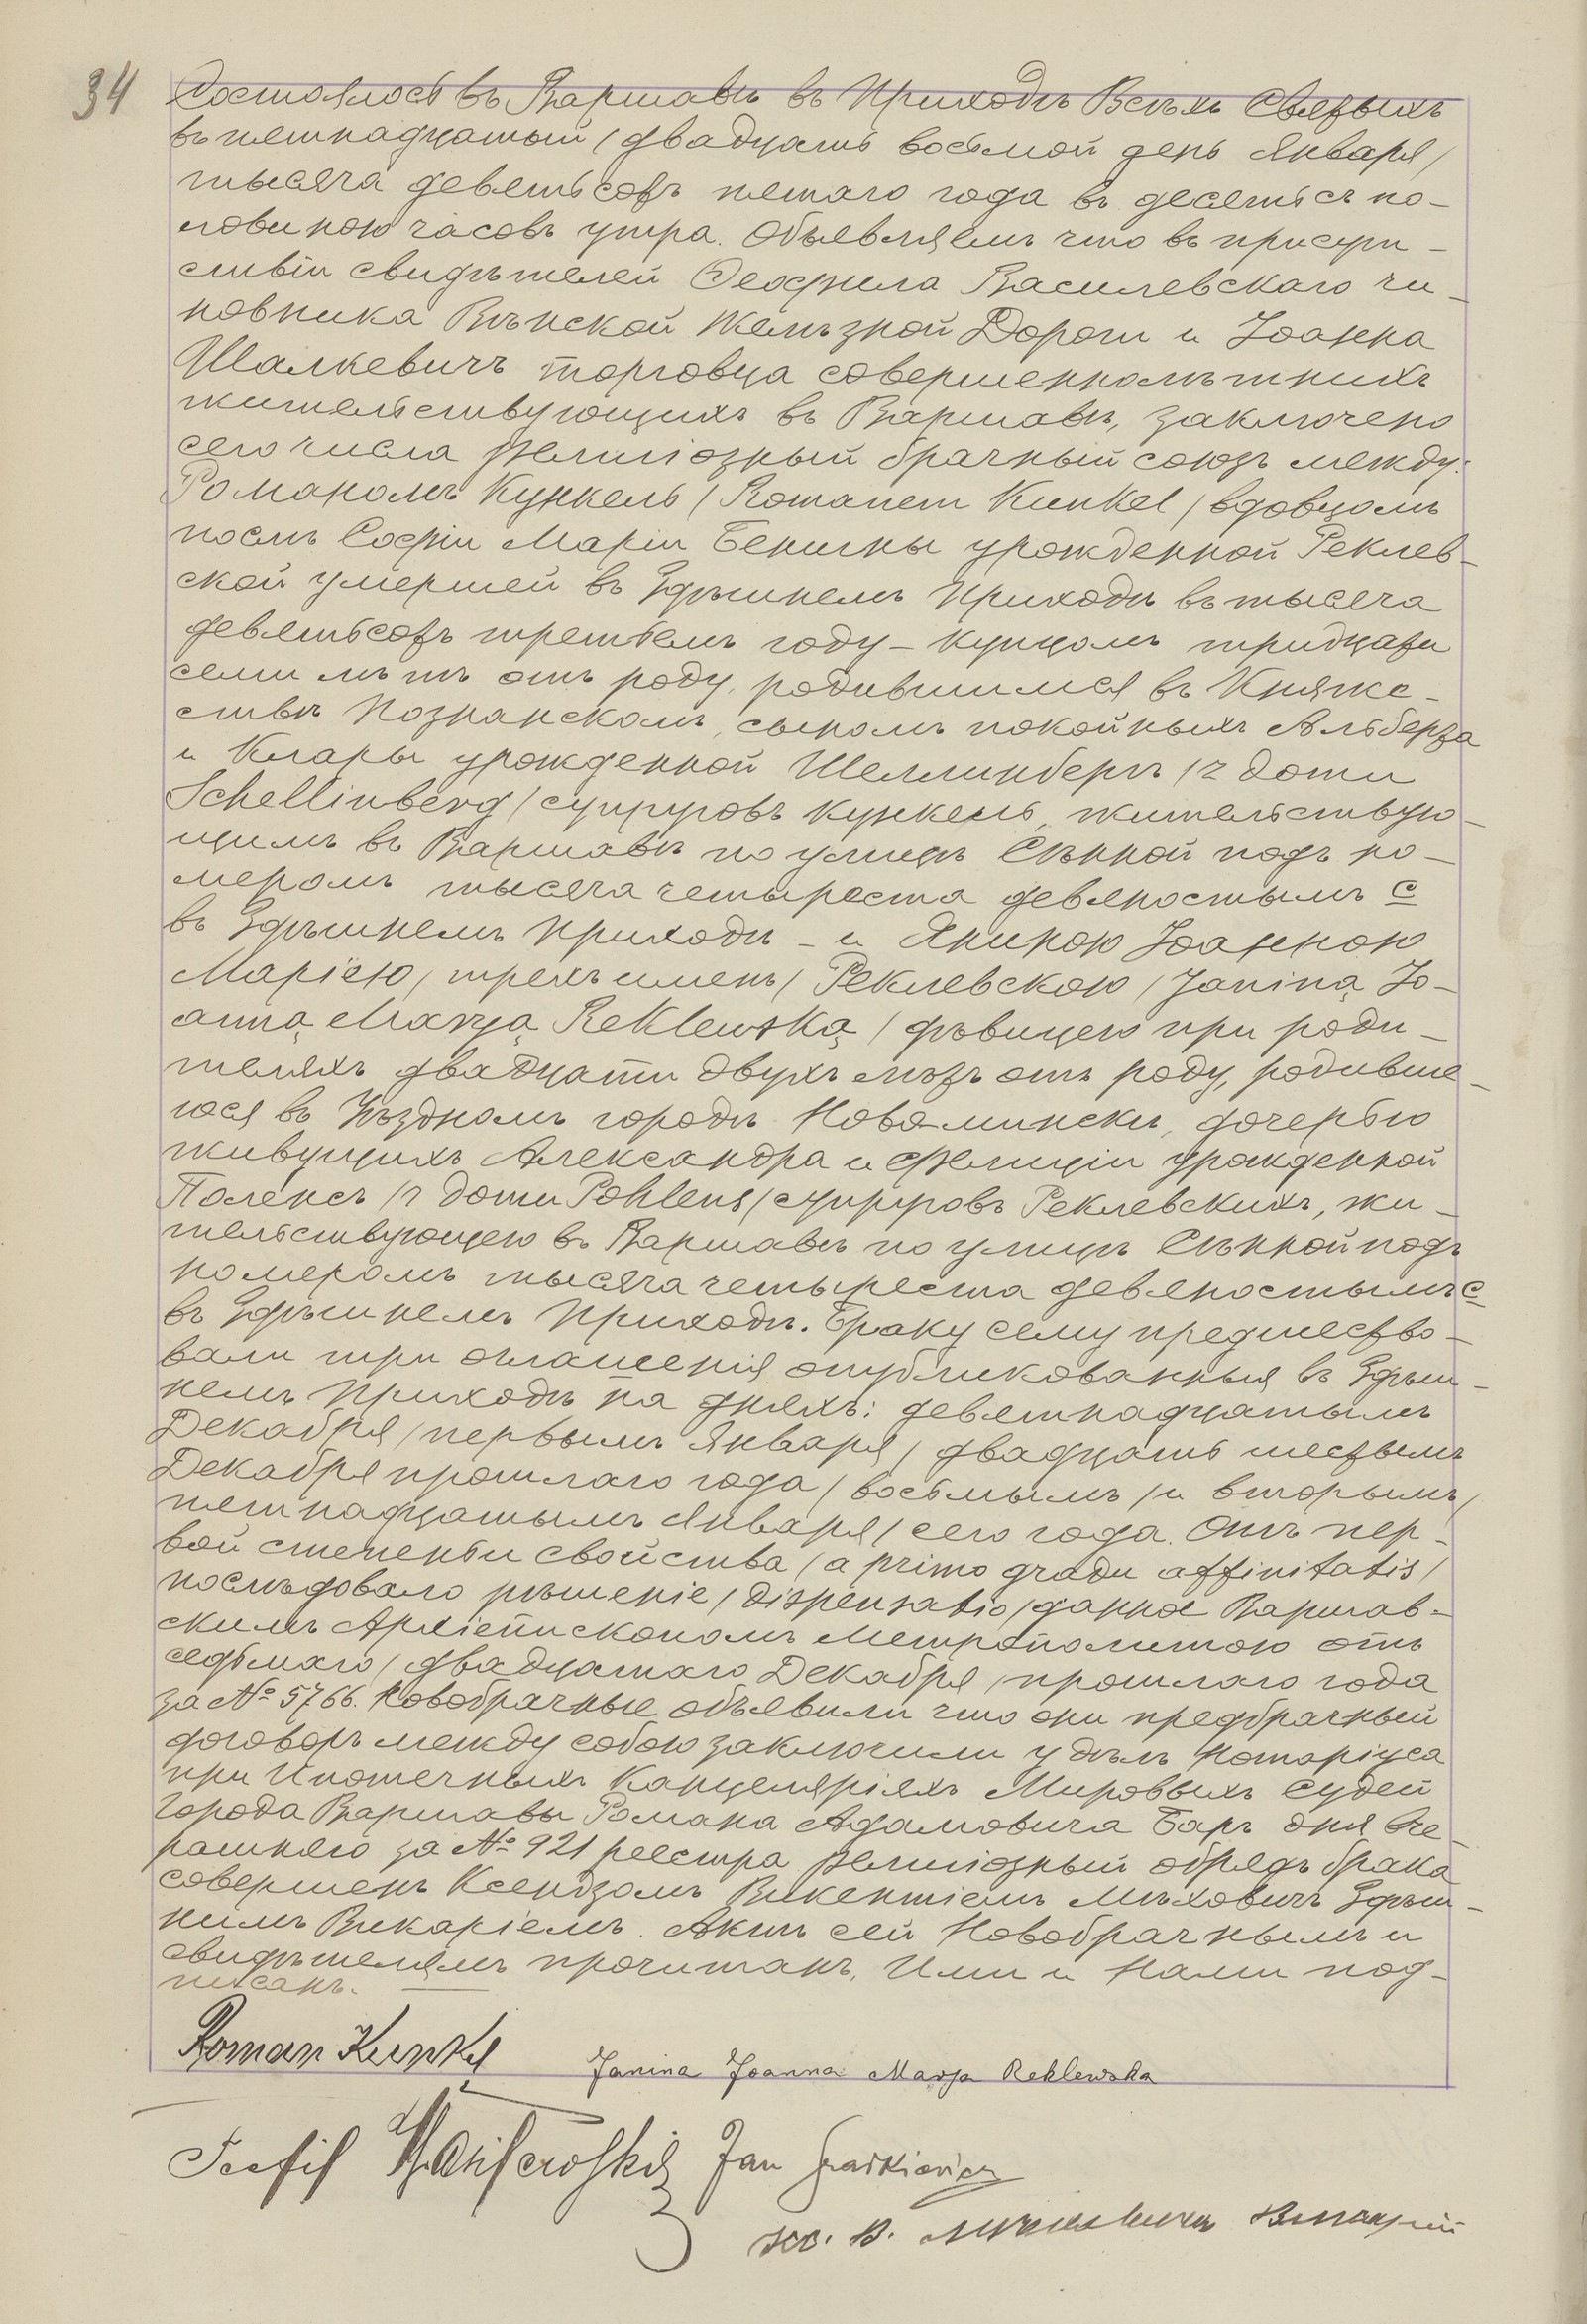 34
Состоялось въ Варшавѣ въ Приходѣ Всѣхъ Святыхъ
въ пятнадцатый / двадцать восьмой день Января /
тысяча девятьсотъ пятаго года въ десять съ по-
ловиною часовъ утра. Объявляемъ что въ присут-
ствіи свидѣтелей Ѳеофила Василевскаго чи-
новника Вѣнской Желѣзной Дороги и Іоанна
Шалкевичъ торговца совершеннолѣтнихъ
жительствующихъ въ Варшавѣ, заключено
сего числа Религіозный брачный союзъ между:
Романомъ Кункель / Romanem Kunkel / вдовцомъ
послѣ Софіи Маріи Бенигны урожденной Реклев-
ской умершей въ Здѣшнемъ Приходѣ въ тысяча
девятьсотъ третьемъ году – купцомъ тридцати
семи лѣтъ отъ роду, родившимся въ Княже-
ствѣ Познанскомъ, сыномъ покойныхъ Альберта
и Клары урожденной Шеллинбергъ / z domu
Schellinberg / супруговъ Кункель, жительствую-
щимъ въ Варшавѣ по улицѣ Сѣнной подъ но-
меромъ тысяча четыреста девяностымъ с
въ Здѣшнемъ Приходѣ – и Яниною Іоанною
Маріею / трехъ именъ / Реклевскою / Janiną Jo-
anną Marją Reklewską / дѣвицею при роди-
теляхъ двадцати двухъ лѣтъ отъ роду, родивше-
юся въ Уѣздномъ городѣ Новоминскѣ, дочерью
живущихъ Александра и Фелиціи урожденной
Поленсъ / z domu Pohlens / супруговъ Реклевскихъ, жи-
тельствующею въ Варшавѣ по улицѣ Сѣнной подъ
номеромъ тысяча четыреста девяностымъ с
въ Здѣшнемъ Приходѣ. Браку сему предшество-
вали три оглашенія опубликованныя въ Здѣш-
немъ Приходѣ на дняхъ: девятнадцатымъ
Декабря / первымъ Января / двадцать шестымъ
Декабря прошлаго года / восьмымъ / и вторымъ /
пятнадцатымъ Января / сего года. Отъ пер-
вой степеньи свойства / a primo gradu affinitatis /
послѣдовало рѣшеніе / dispensatio / данное Варшав-
скимъ Архіепископомъ Метрополитою отъ
седьмаго / двадцатаго Декабря / прошлаго года
за № 5766. Новобрачные объявили что они предбрачный
договоръ между собою заключили у дѣлъ Нотаріуса
при Ипотечныхъ Канцеляріяхъ Мировыхъ Судей
Города Варшавы Романа Адамовича Баръ дня Вче-
рашняго за № 921 реестра Религіозный обрядъ брака
совершенъ Ксендзомъ Викентіемъ Мѣховичъ Здѣш-
нимъ Викаріемъ. Актъ сей Новобрачнымъ и
свидѣтелямъ прочитанъ, Ими и Нами под-
писанъ.
Roman Kunkel Janina Joanna Marja Reklewska
Teofil Wasilewski Jan Szałkiewicz
Кс. В. Мѣховичъ Викарій